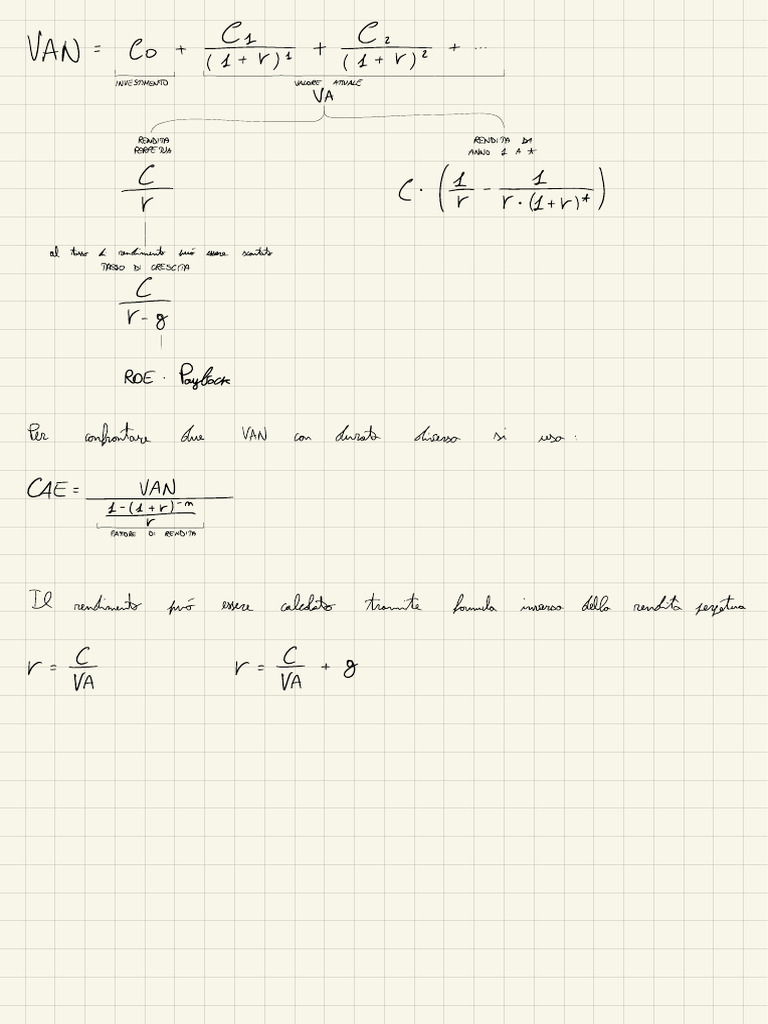 VAN = C0 + C1/(1+r)^1 + C2/(1+r)^2 + ...
INVESTIMENTO VALORE ATTUALE
VA
RENDITA PERPETUA
RENDITA DA ANNO 1 A t
C/r
C · (1/r - 1/(r·(1+r)^t))
al tasso di rendimento può essere scontato
TASSO DI CRESCITA
C/(r - g)
ROE · Payback
Per confrontare due VAN con durata diversa si usa:
CAE = VAN/((1-(1+r)^-n)/r)
FATTORE DI RENDITA
Il rendimento può essere calcolato tramite formula inversa della rendita perpetua
r = C/VA
r = C/VA + g